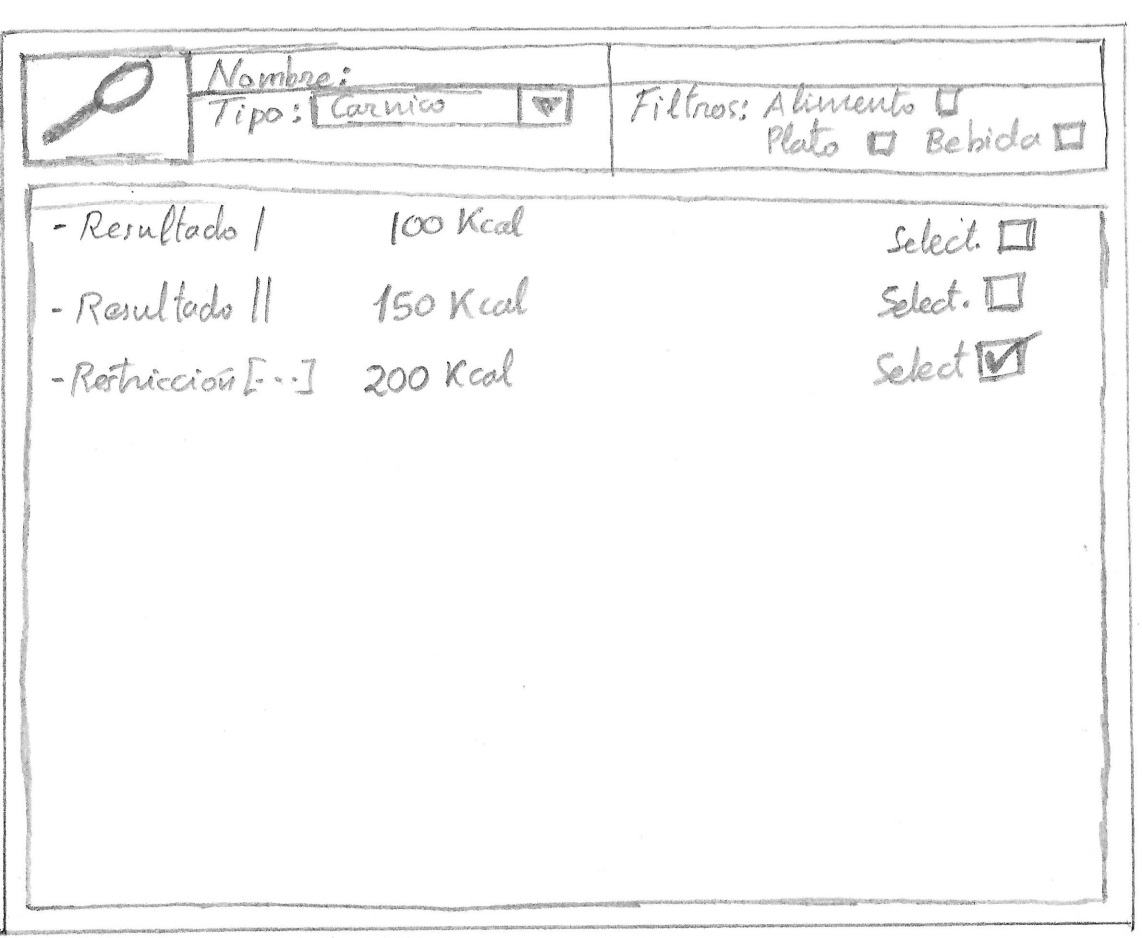 Nombre:
Tipo: Carnico
Filtros: Alimento
Plato Bebida
- Resultado I 100 Kcal Select.
- Resultado II 150 Kcal Select.
- Restricción [...] 200 Kcal Select